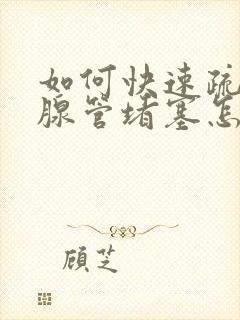 如何快速疏
腺管堵塞怎
顾芝